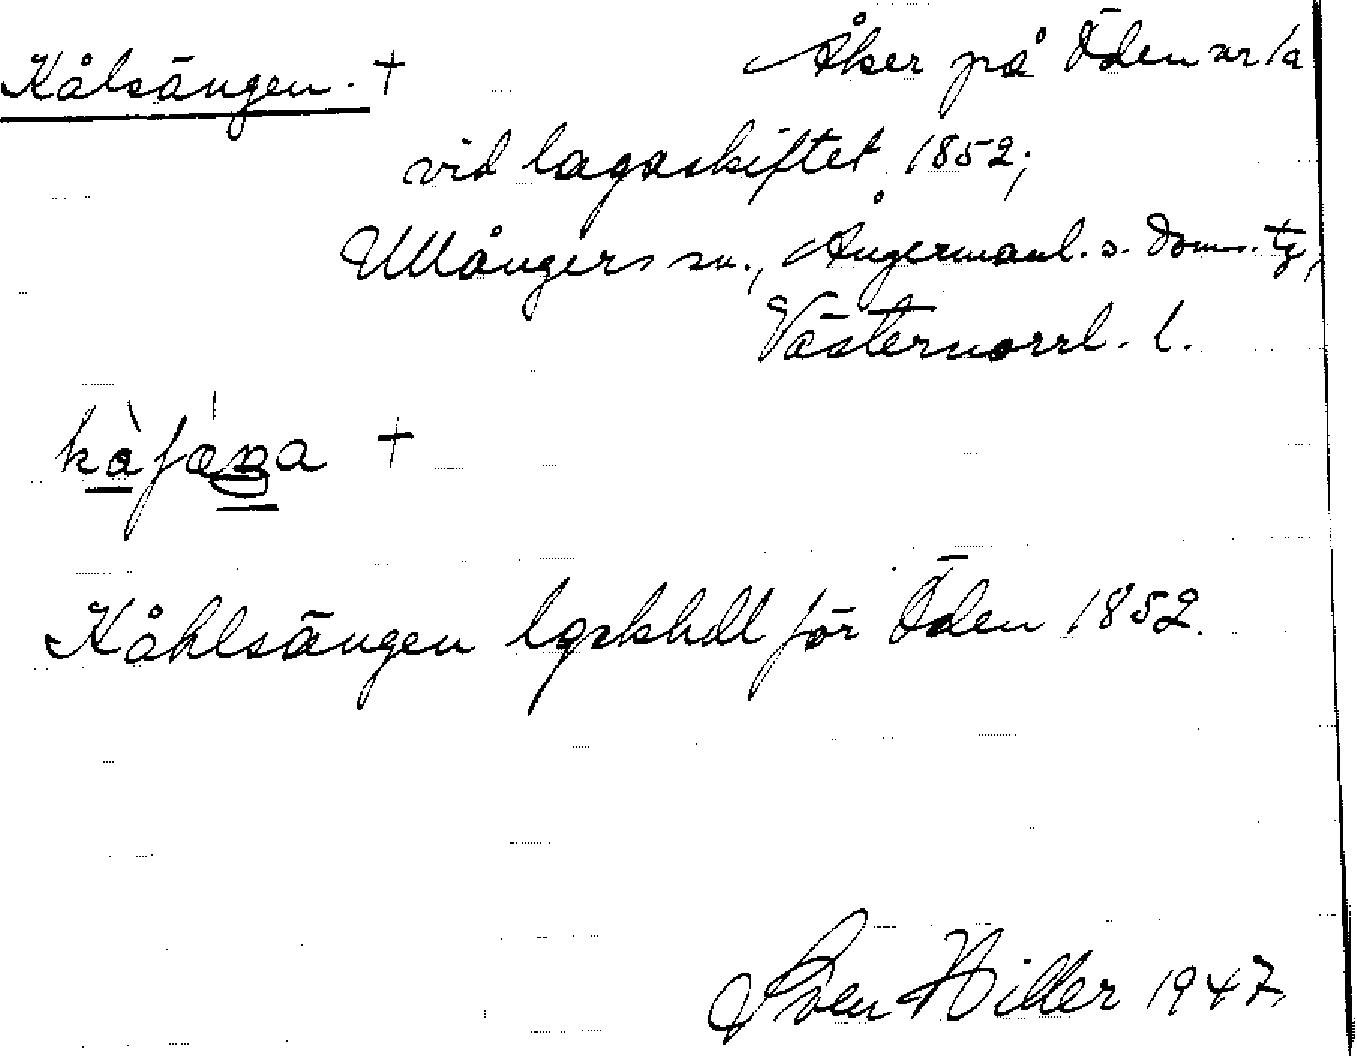 Kålsängen. + Åker på Öden nr 1a
vid lagaskiftet 1852;
Ullångers sn., Ångermanl. s. doms. tg,
Västernorrl. l.
kå̀ʃæŋa +
Kåhlsängen lgskhdl för Öden 1852.
Sven Hiller 1947